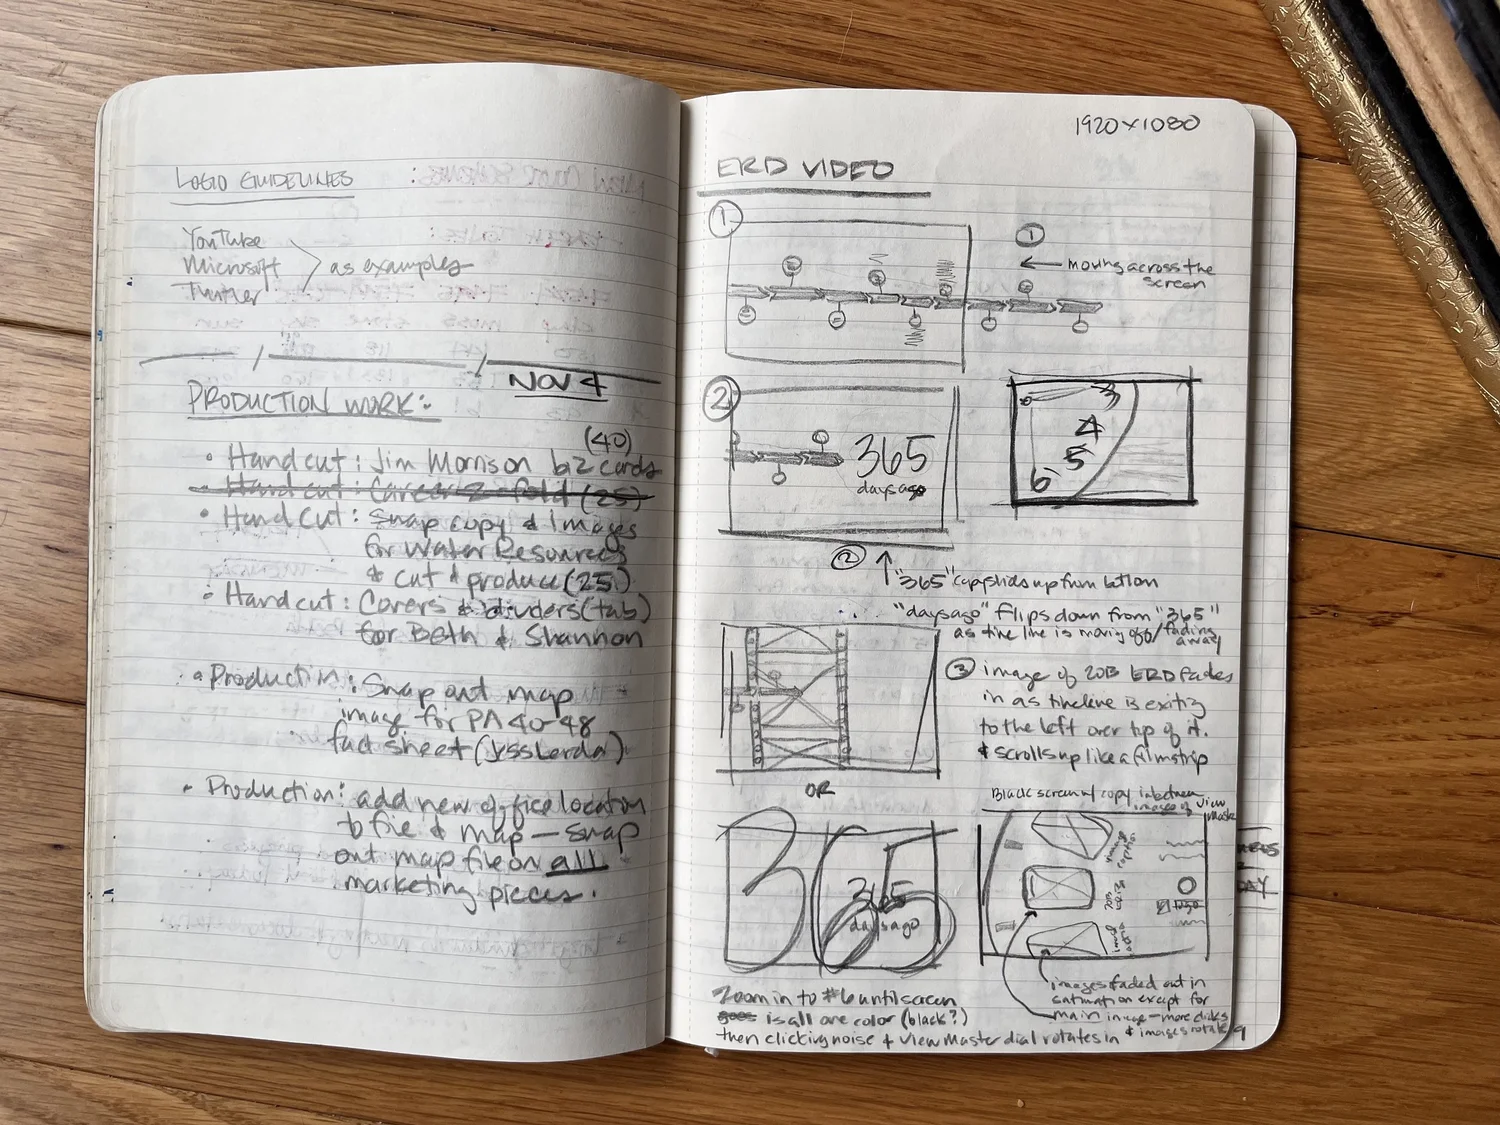 LOGO GUIDELINES
YouTube
Microsoft
Twitter
as examples
NOV 4
PRODUCTION WORK:
(40)
• Hand cut: Jim Morrison biz cards
• Hand cut: Career 2-fold (25)
• Hand Cut: Swap copy & Images
for Water Resources
& cut & produce (25)
• Hand cut: Covers & dividers (tab)
for Beth & Shannon
• Production: Swap out map
image for PA 40-48
fact sheet (Jess Lerda)
• Production: add new office location
to file & map — swap
out map file on all
marketing pieces.
1920x1080
ERD VIDEO
1
1
← moving across the
screen
2
365
days ago
3
4
5
6
2
↑ "365" copy slides up from bottom
"days ago" flips down from "365"
as the line is moving off/fading
away
3 image of 20B ERD fades
in as timeline is exiting
to the left over top of it.
& scrolls up like a filmstrip
OR
Black screen w/ copy in between
images of View
Master
365
365
days ago
image
caption
image
caption
images faded out in
saturation except for
main image — more clicks
& images rotate
Zoom in to #6 until screen
goes is all one color (black?)
then clicking noise + ViewMaster dial rotates in
DAY